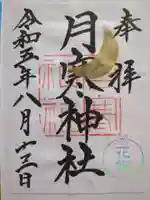 奉拝
月寒神社
令和五年八月十三日